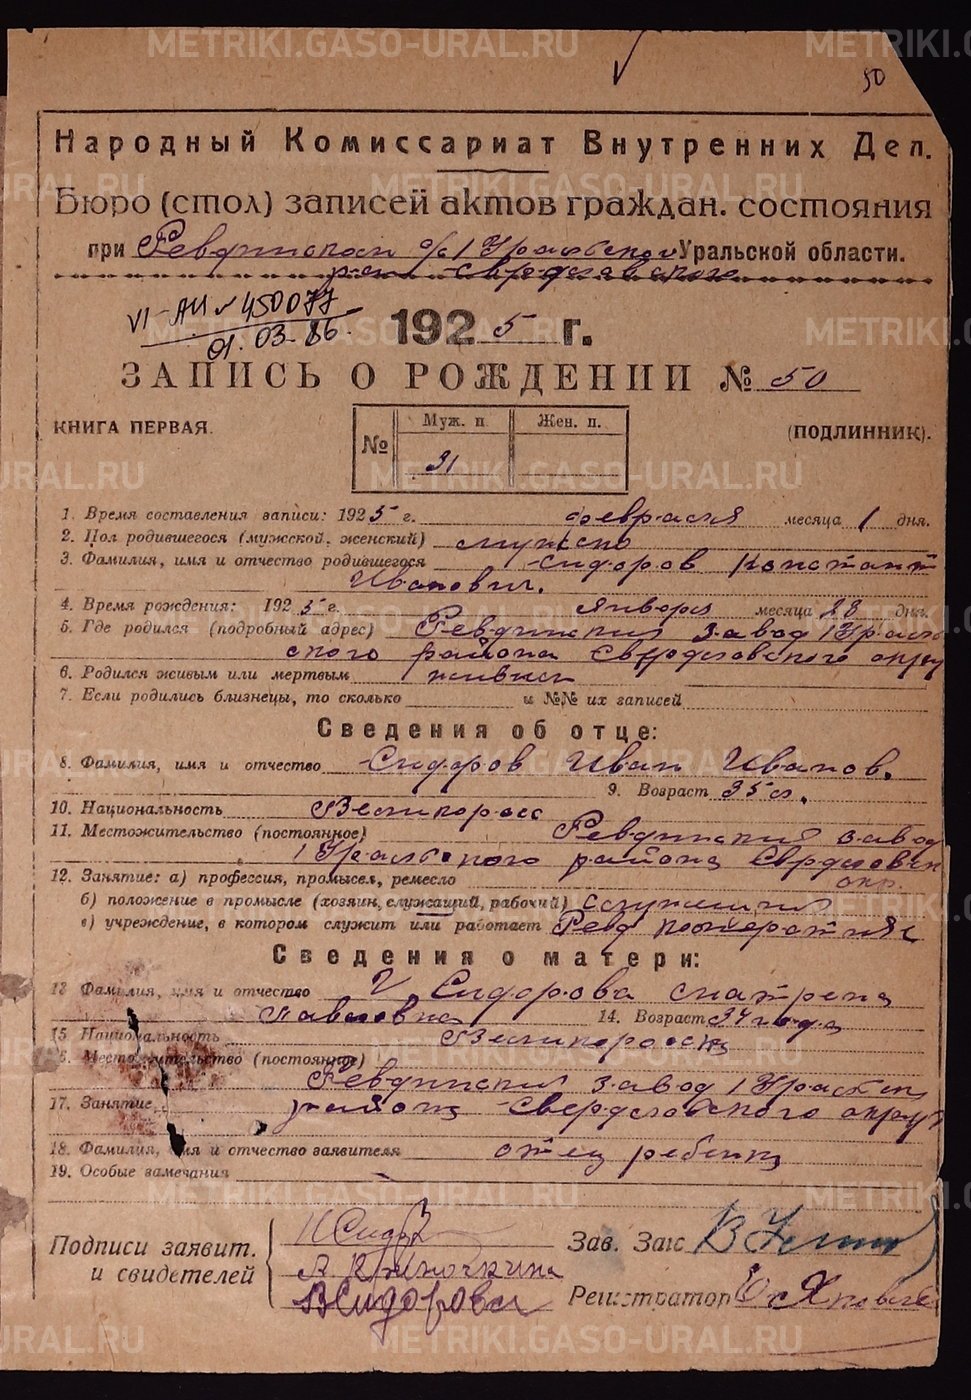 50
Народный Комиссариат Внутренних Дел.
Бюро (стол) записей актов граждан. состояния
при Ревдинском Уральской области.
VI-АИ № 450077
01.03-86.
1925 г.
ЗАПИСЬ О РОЖДЕНИИ № 50
КНИГА ПЕРВАЯ.
(ПОДЛИННИК).
№ Муж. п. Жен. п.
31
1. Время составления записи: 1925 г. февраля месяца 1 дня.
2. Пол родившегося (мужской, женский) мужско
3. Фамилия, имя и отчество родившегося Сидоров Констант
Иванович.
4. Время рождения: 1925 г. января месяца 28 дня.
5. Где родился (подробный адрес) Ревдинский завод 1 Ураль
ского района Свердловского окру
6. Родился живым или мертвым живым
7. Если родились близнецы, то сколько и №№ их записей
Сведения об отце:
8. Фамилия, имя и отчество Сидоров Иван Иванов.
9. Возраст 35 л.
10. Национальность Великоросс
11. Местожительство (постоянное) Ревдинский завод
1 Уральского района Свердловск
окр.
12. Занятие: а) профессия, промысел, ремесло
б) положение в промысле (хозяин, служащий, рабочий) служащий
в) учреждение, в котором служит или работает Ревд
Сведения о матери:
13 Фамилия, имя и отчество Сидорова Матрена
Павловна 14. Возраст 34 года
15 Национальность Великоросска
16. Местожительство (постоянное)
Ревдинский завод 1 Уральск
17. Занятие района Свердловского округа
18. Фамилия, имя и отчество заявителя отец ребенка
19. Особые замечания
Подписи заявит.
и свидетелей
И Сидор
В Сидорова
Зав. Загс
Регистратор
METRIKI.GASO-URAL.RU